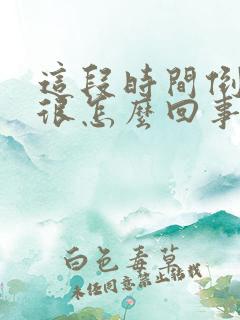 這段時間倒
很怎麼回事
白色毒草
未经同意禁止转载